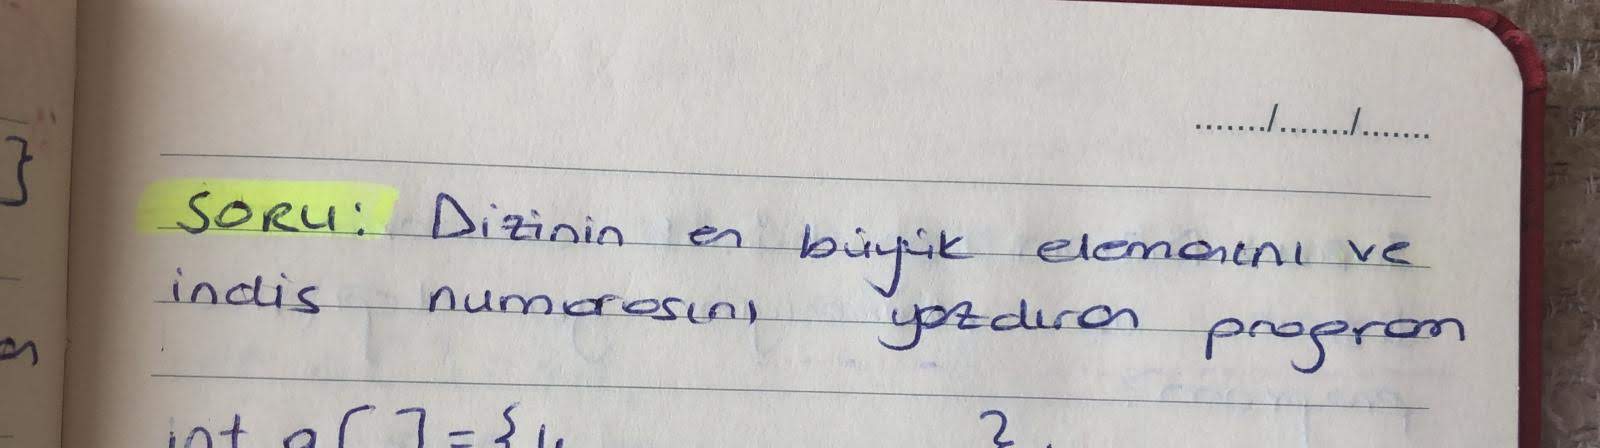 ......./......./.......
}
SORU: Dizinin en büyük elemanını ve
indis numarasını yazdıran program
int a[ ] = {